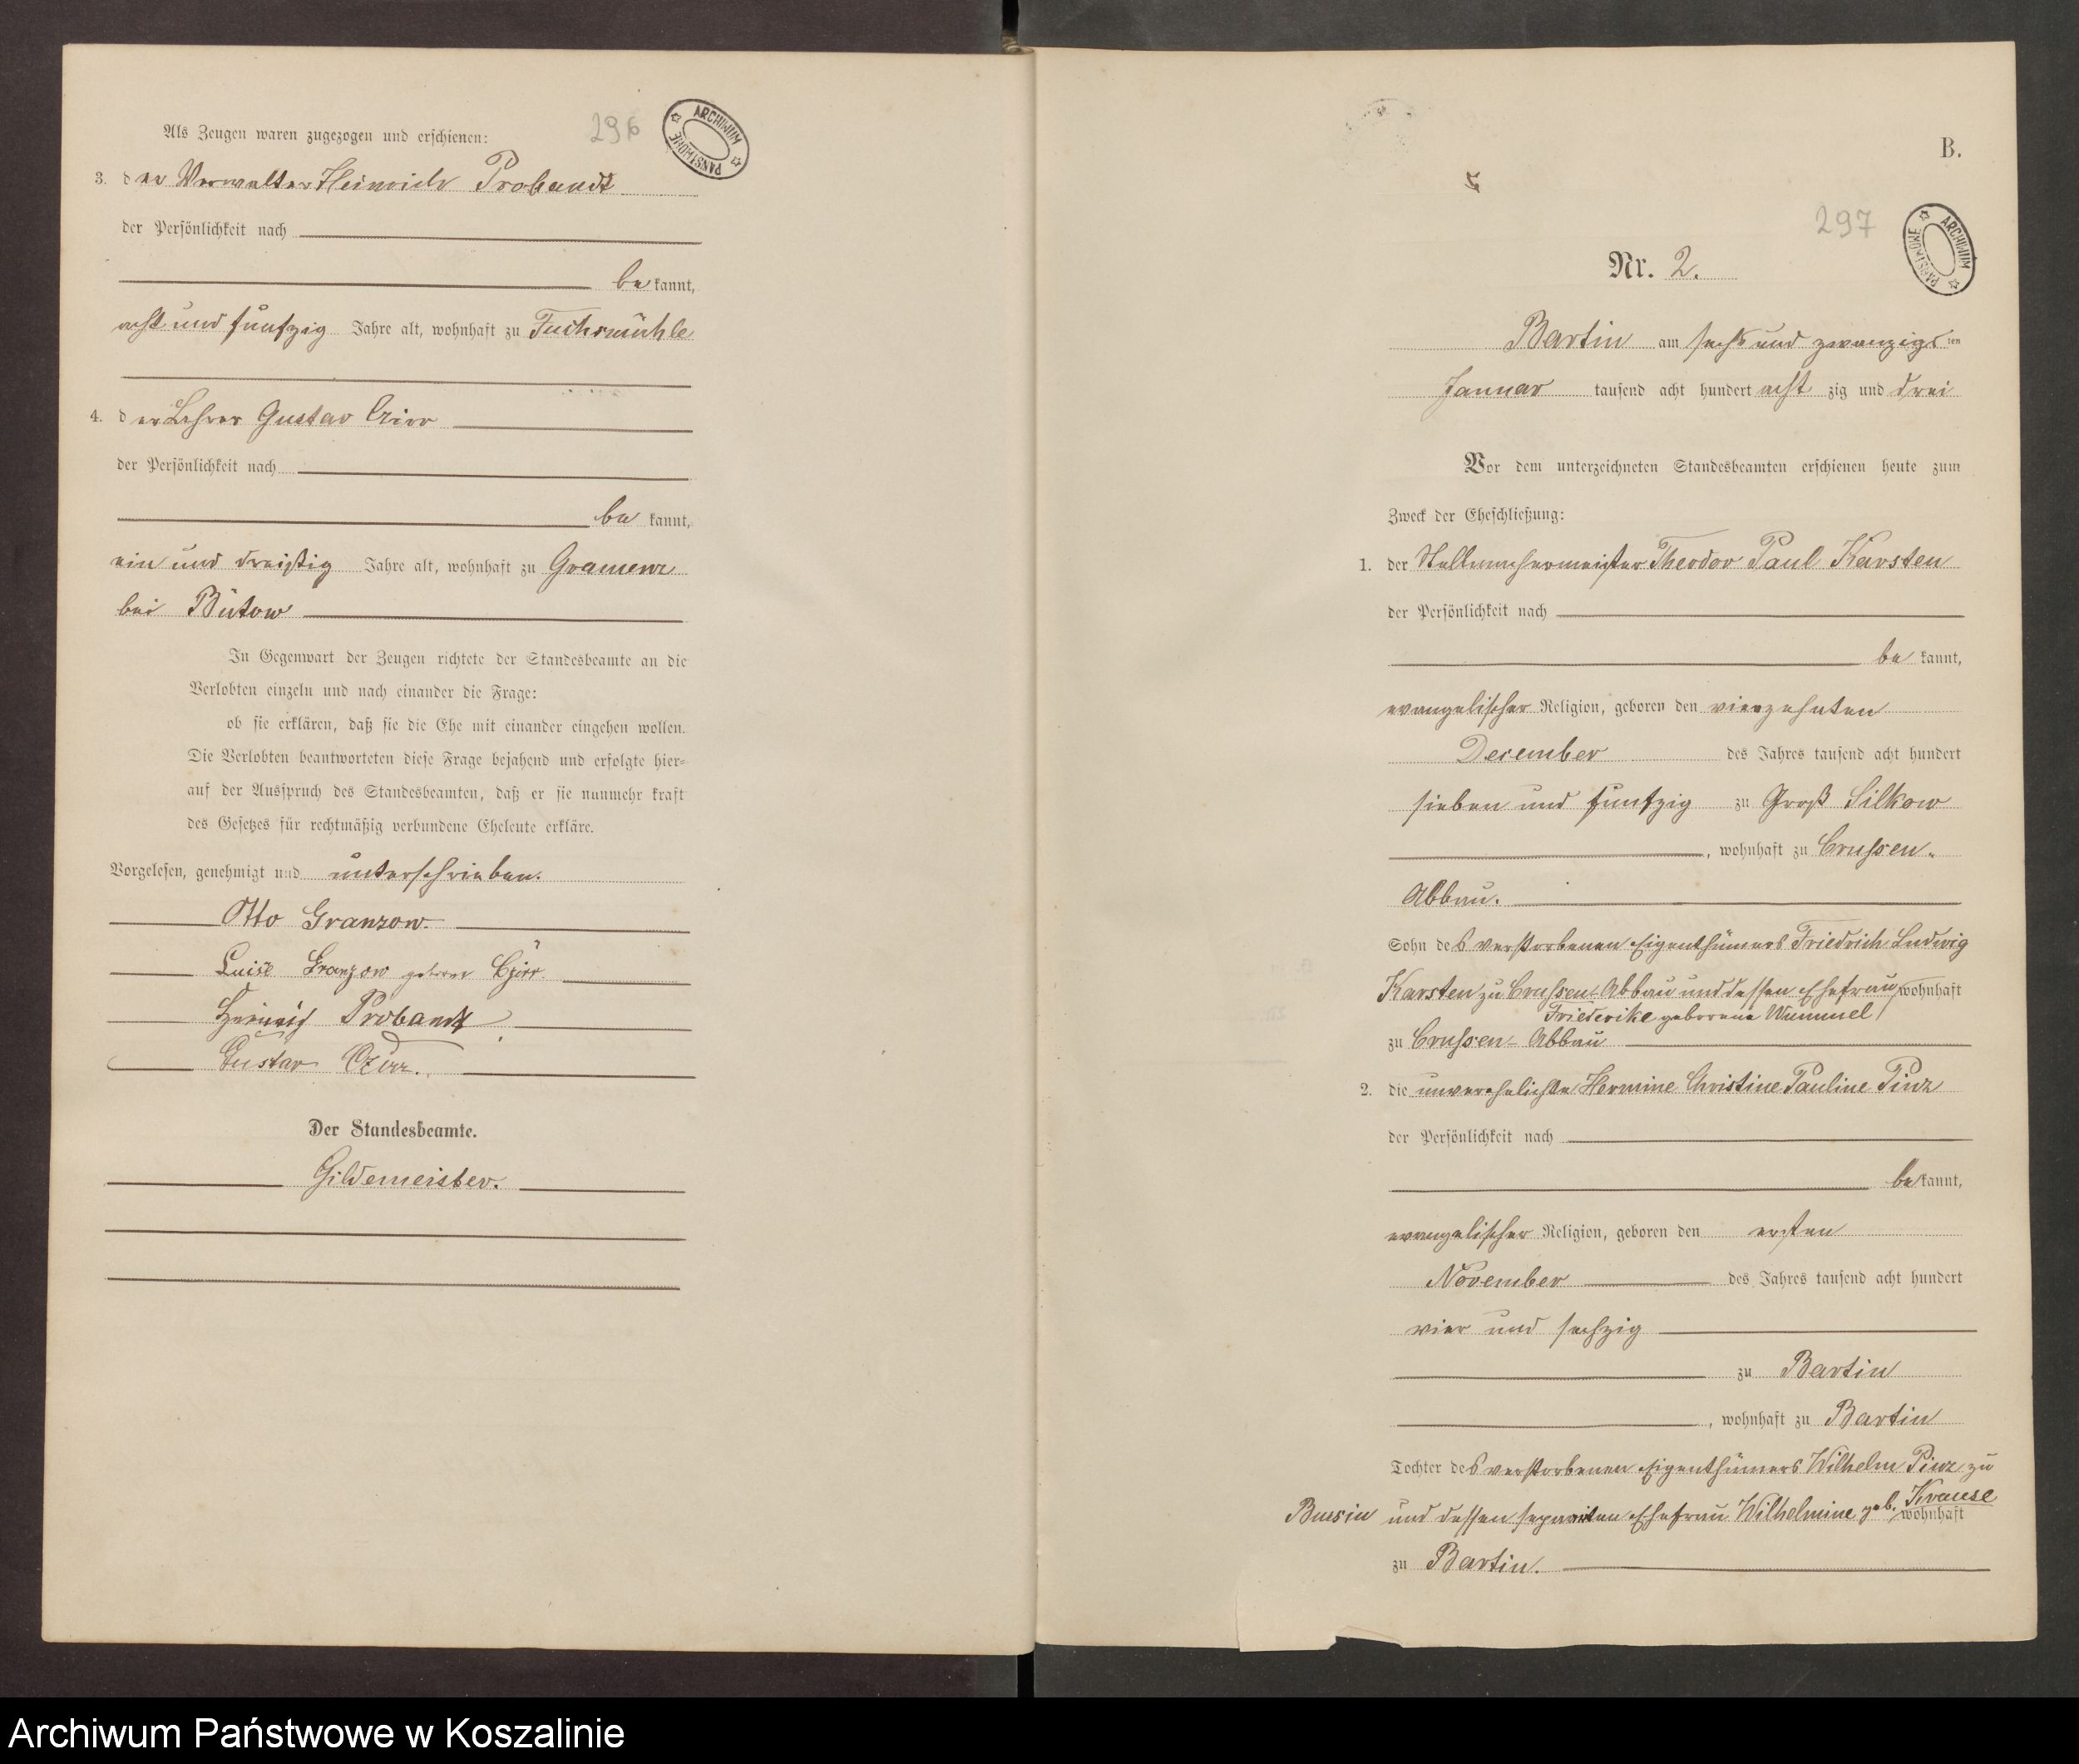 296
ARCHIWUM PAŃSTWOWE
Als Zeugen waren zugezogen und erschienen:
3. der Verwalter Heinrich Probandt
der Persönlichkeit nach
bekannt,
acht und fünfzig Jahre alt, wohnhaft zu Fuchsmühle
4. der Lehrer Gustav Czirr
der Persönlichkeit nach
bekannt,
ein und dreißig Jahre alt, wohnhaft zu Gramenz
bei Bütow
In Gegenwart der Zeugen richtete der Standesbeamte an die
Verlobten einzeln und nach einander die Frage:
ob sie erklären, daß sie die Ehe mit einander eingehen wollen.
Die Verlobten beantworteten diese Frage bejahend und erfolgte hier-
auf der Ausspruch des Standesbeamten, daß er sie nunmehr kraft
des Gesetzes für rechtmäßig verbundene Eheleute erkläre.
Vorgelesen, genehmigt und unterschrieben.
Otto Granzow.
Luise Granzow geborne Czirr.
Heinrich Probandt
Gustav Czirr.
Der Standesbeamte.
Gildemeister.
B.
297
ARCHIWUM PAŃSTWOWE
Nr. 2.
Bartin am sechs und zwanzigsten
Januar tausend acht hundert achtzig und drei
Vor dem unterzeichneten Standesbeamten erschienen heute zum
Zweck der Eheschließung:
1. der Stellmachermeister Theodor Paul Karsten
der Persönlichkeit nach
bekannt,
evangelischer Religion, geboren den vierzehnten
December des Jahres tausend acht hundert
sieben und fünfzig zu Groß Silkow
, wohnhaft zu Crussen-
Abbau.
Sohn des verstorbenen Eigenthümers Friedrich Ludwig
Karsten zu Crussen-Abbau und dessen Ehefrau, wohnhaft
Friederike geborene Wummel/
zu Crussen-Abbau
2. die unverehelichte Hermine Christine Pauline Pinz
der Persönlichkeit nach
bekannt,
evangelischer Religion, geboren den ersten
November des Jahres tausend acht hundert
vier und sechzig
zu Bartin
, wohnhaft zu Bartin
Tochter des verstorbenen Eigenthümers Wilhelm Pinz zu
Bussin und dessen separirten Ehefrau Wilhelmine geb. Krause wohnhaft
zu Bartin.
Archiwum Państwowe w Koszalinie